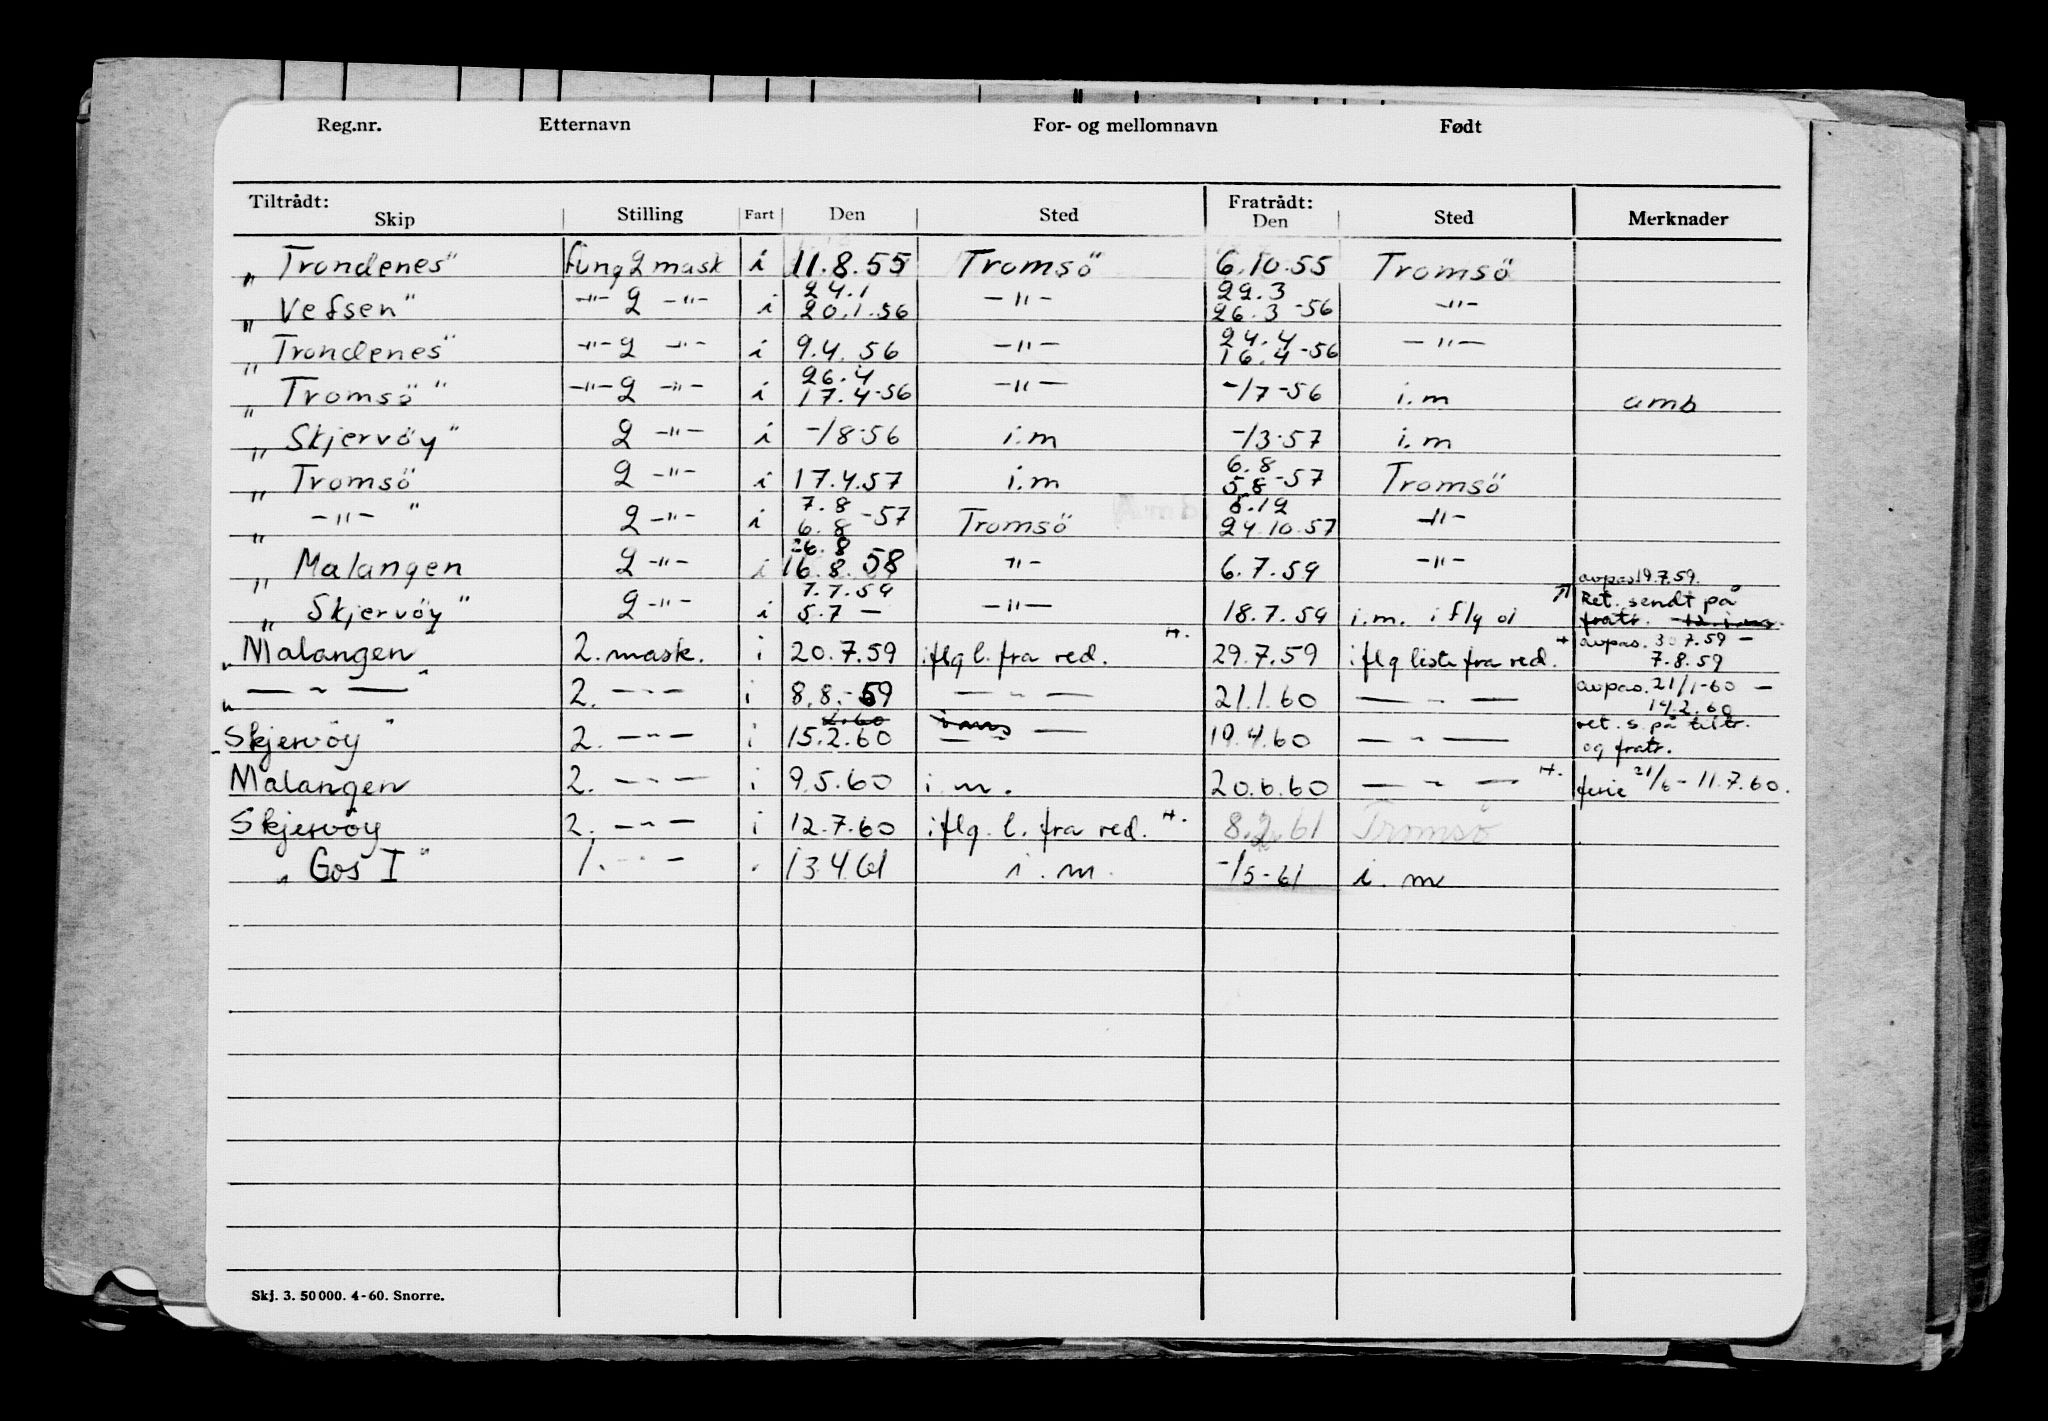 Reg.nr. Etternavn For- og mellomnavn Født
Tiltrådt: Fratrådt:
Skip Stilling Fart Den Sted Den Sted Merknader
„Trondenes" fung 2 mask i 11.8.55 Tromsö 6.10.55 Tromsö
24.1 22.3
„Vefsen" -"- 2 -"- i 20.1.56 -"- 26.3-56 -"-
24.4
„Trondenes" -"- 2 -"- i 9.4.56 -"- 16.4-56 -"-
26.4
„Tromsö" -"- 2 -"- i 17.4-56 -"- -/7-56 i.m amb
„Skjervöy" 2 -"- i -/8-56 i.m -/3-57 i.m
6.8
„Tromsö 2 -"- i 17.4.57 i.m 5.8-57 Tromsö
7.8 5.12
„ -"- " 2 -"- i 6.8-57 Tromsö 24.10.57 -"-
26.8
„Malangen 2 -"- i 16.8.58 "- 6.7.59 -"-
7.7.59 avpas 19.7.59.
„Skjervöy" 2 -"- i 5.7 — -"- 18.7.59 i.m. i flg Ret. sendt på
fratr.
„Malangen 2. mask. i 20.7.59 iflg l. fra red. 29.7.59 iflg liste fra red. avpas. 30.7.59 -
7.8.59
„ — " — " 2. -"- i 8.8.-59 — " — 21.1.60 — " — avpas. 21/1-60 -
14.2.60
„Skjervöy" 2. -"- i 15.2.60 — " — 19.4.60 — " — ret. s. på tiltr.
og fratr.
Malangen 2. -"- i 9.5.60 i.m. 20.6.60 — " — ferie 21/6 - 11.7.60.
Skjervöy 2. -"- i 12.7.60 iflg. l. fra red. 8.2.61 Tromsö
„Gos I" 1. -"- 13.4.61 i.m. -/5-61 i.m
Skj. 3. 50 000. 4-60. Snorre.